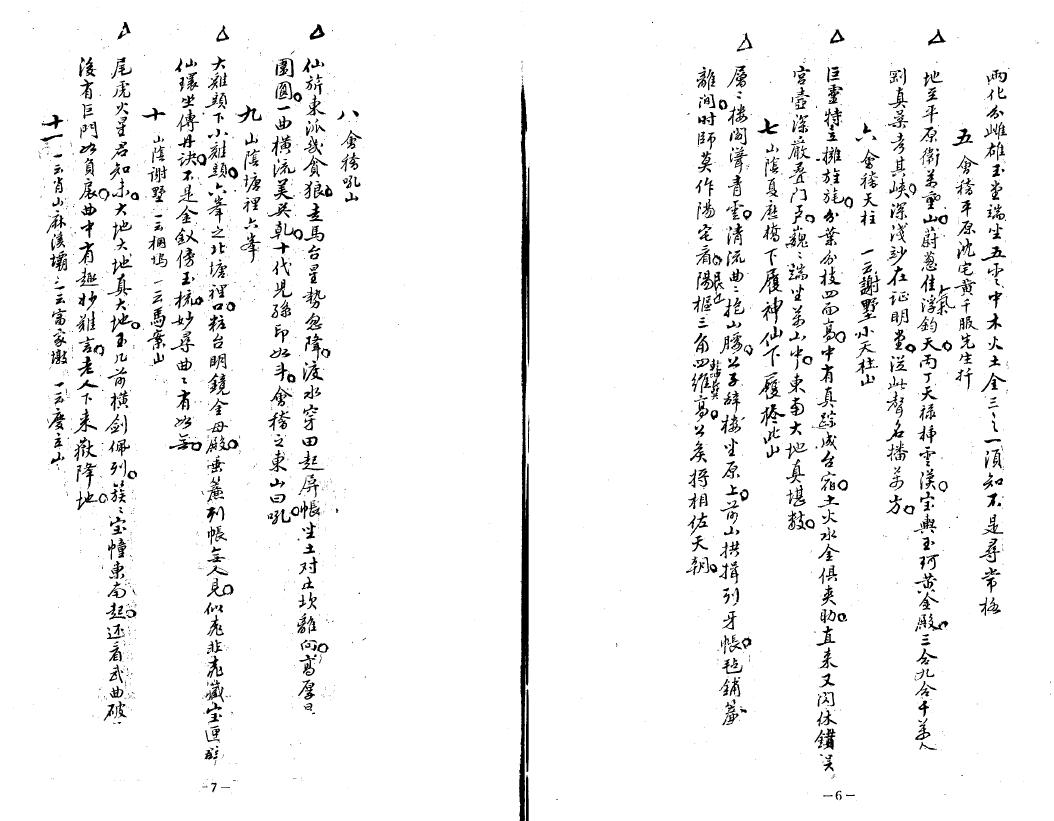 兩化分雌雄玉堂端坐五雲中木火土金三三一須知不是尋常格
五 會稽平原沈宅黃千服先生扦
△ 地至平原衛萬重山蔚蔥佳氣上浮鈞天丙丁天祿插雲漢宝輿玉珂黃金殿三合九合千萬人
剴真葉考其峽深淺砂在证明堂從此聲名播萬方
六 會稽天柱 一云謝墅小天柱山
△ 巨靈特立擁旌旄分葉分枝四面高中有真踪成台宿土火水金俱夾助直来又閃休錯误
宮壺深嚴叠门户巍巍端坐萬山中東南大地真堪数
七 山陰夏應橋下履神仙下履格此山
△ 層層樓閣聳青雲清流曲曲抱山腰公子辞楼坐原上前山拱揖列牙帳毡鋪簾
離间时師莫作陽宅看陽樞三角四維高公矦将相佐天朝
八 會稽吼山
△ 仙旂東派幾貪狼走馬台星勢忽降渡水穿田起屏帳坐土对土坎離向高厚曰
圍圓一曲橫流美吴乾十代兒孫印如斗會稽之東山曰吼
九 山陰塘裡六峯
△ 大雞頭下小雞頭六峯之北塘裡口粧台明鏡金母殿垂簾列帳無人見似虎非虎藏宝匣群
仙環坐傳丹诀不是金釵傍玉梳妙尋曲曲有如無
十 山陰謝墅 一云棡塢 一云馬案山
△ 尾虎火星君知未大地大地真大地玉几前橫劍佩列簇簇宝幢東南起还看武曲破
後有巨門如負扆曲中有趣妙難言老人下来歡降地
十一 一云肖山麻溪壩 二云富家墩 一云慶立山
-7-
-6-